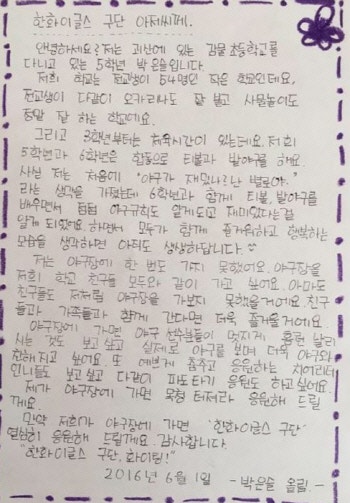 한화이글스 구단 아저씨께.
안녕하세요? 저는 괴산에 있는 감물초등학교를
다니고 있는 5학년 박은솔입니다.
저희 학교는 전교생이 54명인 작은 학교인데요,
전교생이 다같이 오카리나도 잘 불고 사물놀이도
정말 잘 하는 학교에요.
그리고 3학년부터는 체육시간이 있는데요, 저희
5학년과 6학년은 합동으로 티볼과 발야구를 해요.
사실 저는 처음에 "야구가 재밌나? 난 별로야."
라는 생각을 가졌는데 6학년과 함께 티볼, 발야구를
배우면서 점점 야구규칙도 알게되고 재미있다는걸
알게 되었어요. 하면서 모두가 함께 즐거워하고 행복하는
모습을 생각하면 아직도 생생하답니다.
저는 야구장에 한 번도 가지 못했어요. 야구장을
저희 학교 친구들 모두와 같이 가고 싶어요. 아마도
친구들도 저처럼 야구장을 가보지 못했을거에요. 친구
들과 가족들과 함께 간다면 더욱 즐거울거에요
야구장에 가면 야구 선수분들이 멋지게 홈런 날리
시는 것도 보고 싶고 실제로 야구를 보며 더욱 야구와
친해지고 싶어요. 또 예쁘게 춤추고 응원하는 치어리더
언니들도 보고싶고 다같이 파도타기 응원도 하고싶어요.
제가 야구장에 가면 목청 터져라 응원해 드릴
게요.
만약 저희가 야구장에 가면 '한화이글스 구단'
열심히 응원해 드릴게요. 감사합니다.
"한화이글스 구단, 화이팅!"
2016년 6월 1일 - 박은솔 올림 -